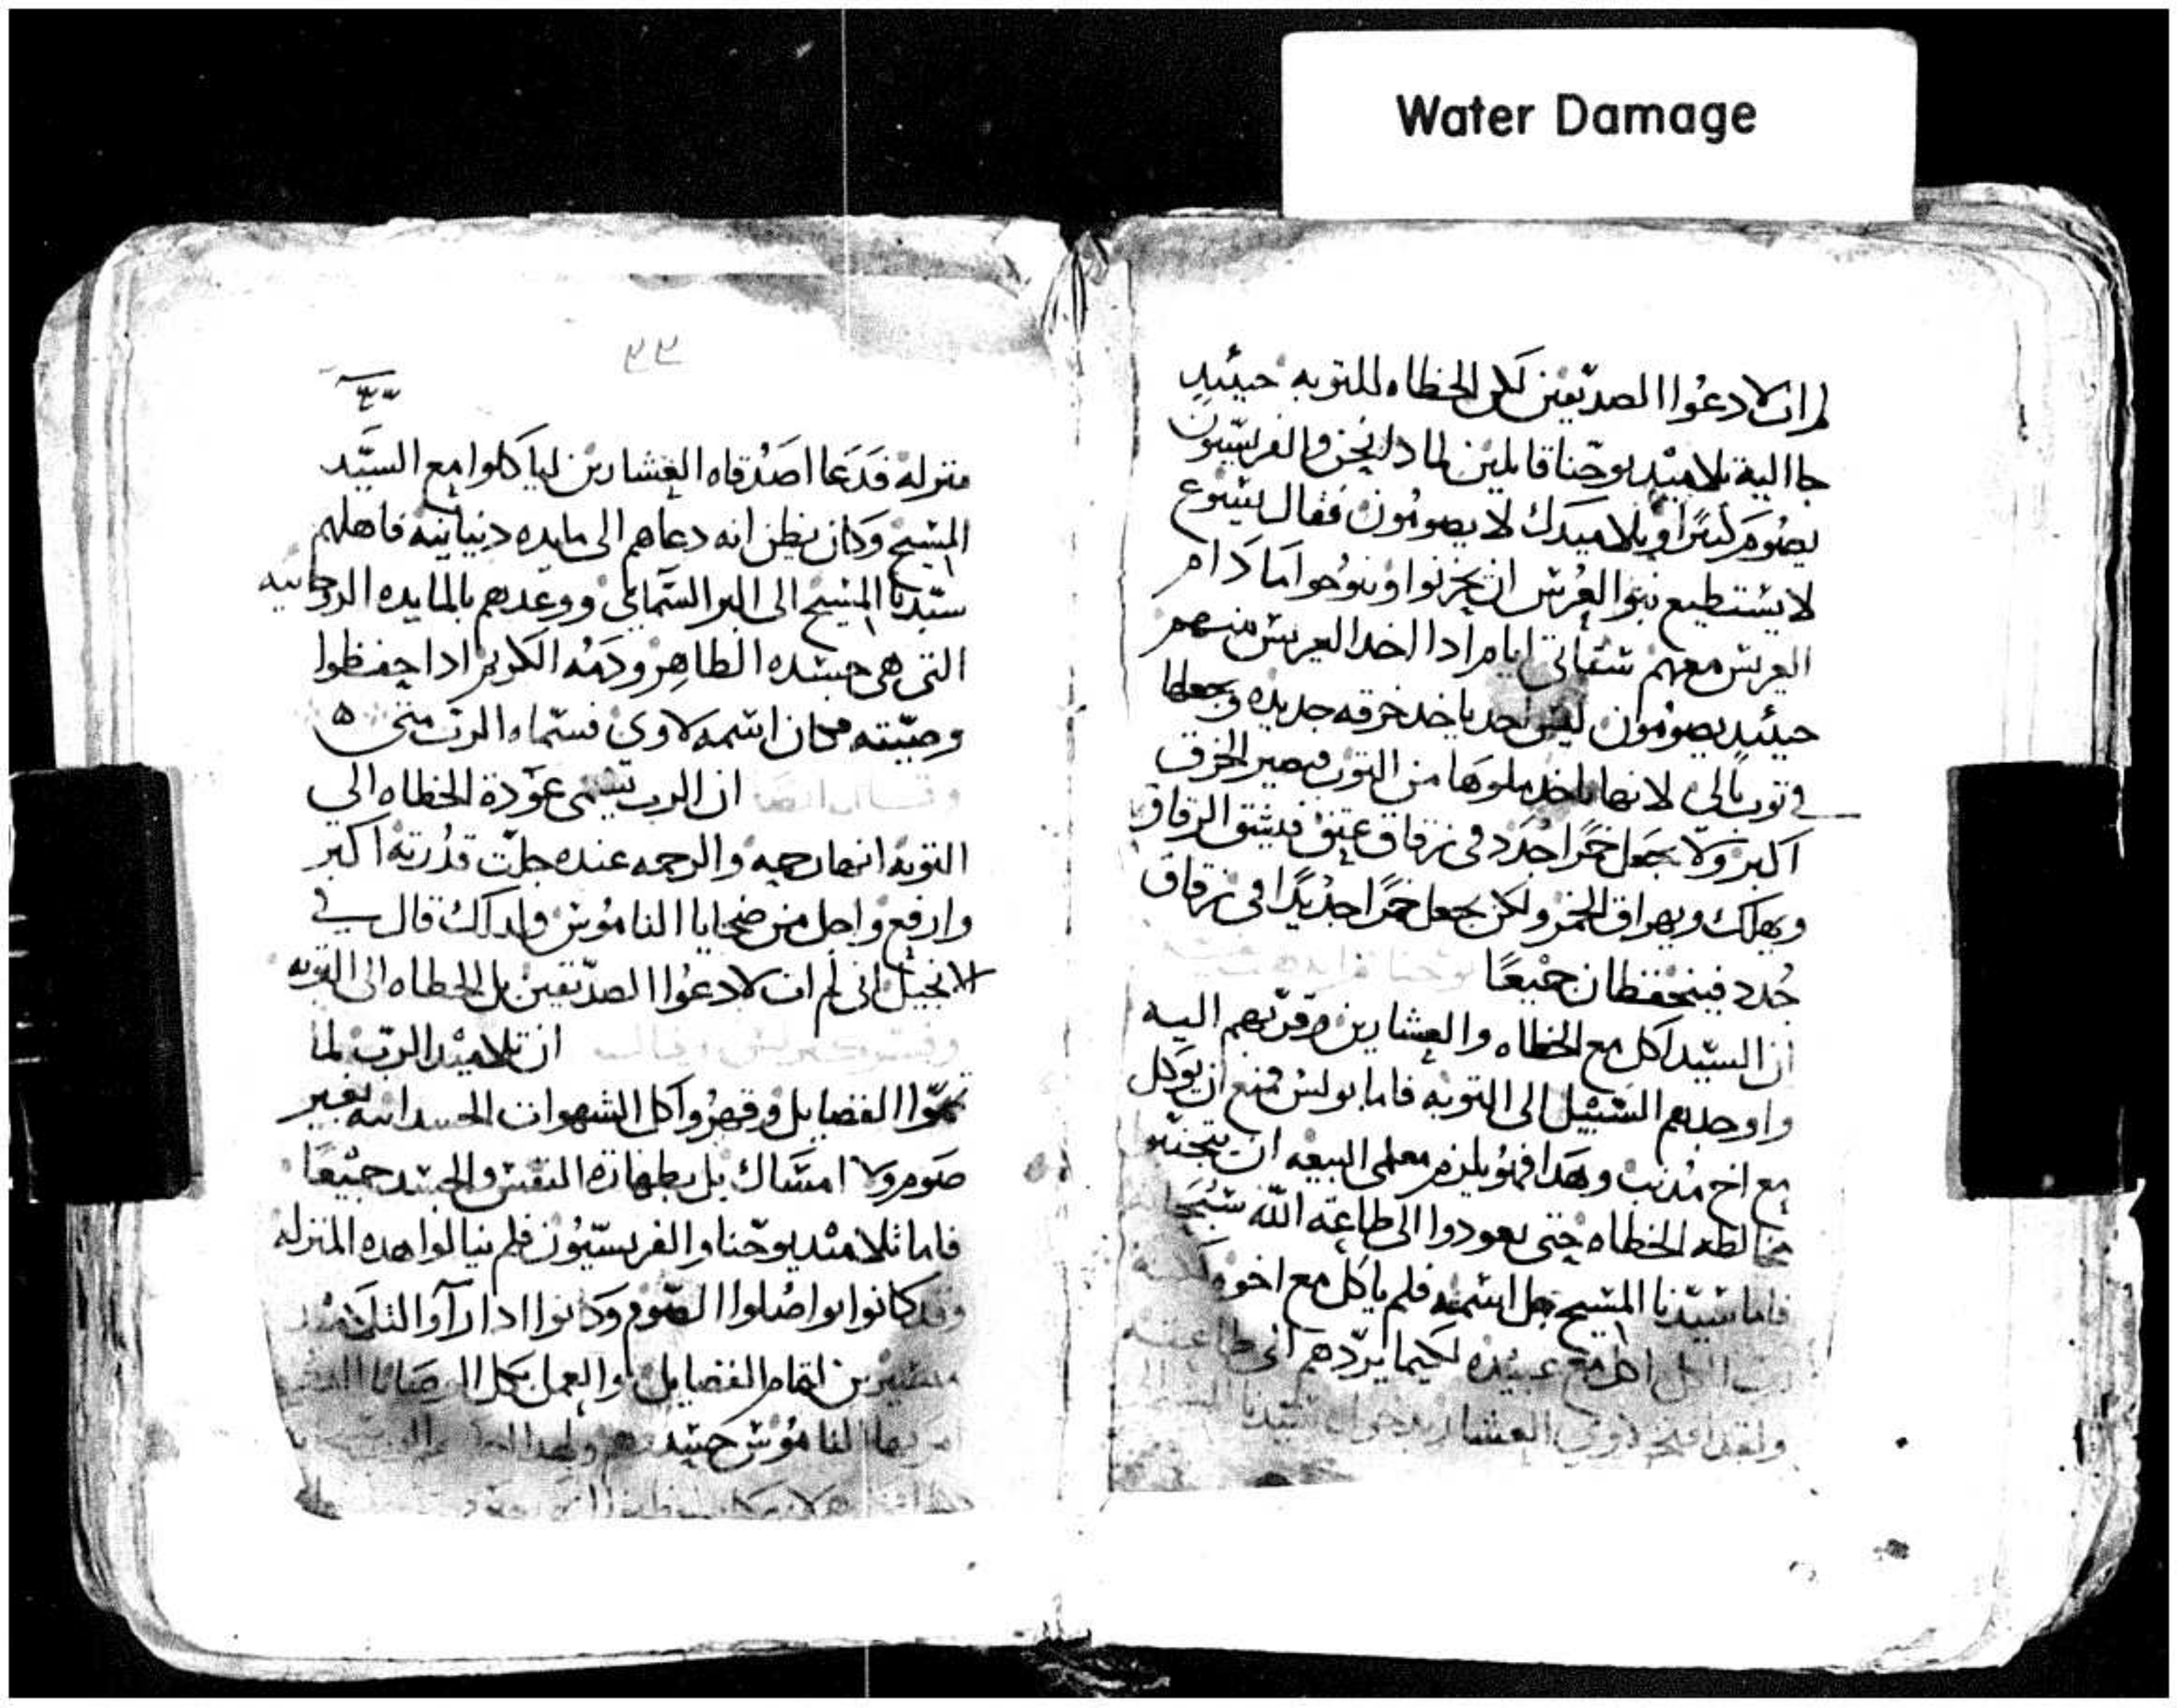 Water Damage
لم ات لادعوا الصديقين لكن الخطاه للتوبه حينيدٍ
جا اليه تلاميد يوحنا قايلين لمادا نحن والفريسيون
نصوم كثيرًا وتلاميدك لا يصومون فقال يسوع
لا يستطيع بنو العرس ان يحزنوا وينوحوا ما دام
العريس معهم ستاتي ايام ادا اخد العريس منهم
حينيد يصومون ليس احد ياخد خرقه جديده ويجعلها
في توب بالي لانها تاخد ملوها من التوب فيصير الخرق
اكبر ولا يجعل خمرًا جدد في زقاق عتق فينشق الزقاق
ويهلك ويهراق الخمر ولكن يجعل خمرًا جديدًا في زقاق
جدد فينحفظان جميعًا
ان السيد اكل مع الخطاه والعشارين وقربهم اليه
واوجدهم السبيل الى التوبه فاما بولس فمنع ان يوكل
مع اخ مدنب وبهدا فهو يلزم معلمي البيعه ان
مخالطه الخطاه حتى يعودوا الى طاعة الله
فاما سيدنا المسيح جل اسمه فلم ياكل مع اخوه
رب الكل اكل مع عبيده لكيما يردهم الى طاعته
العشار بدخول سيدنا
٣٣
منزله فدعا اصدقاه العشارين لياكلوا مع السيد
المسيح وكان يظن انه دعاهم الى مايده دنيانيه فاهلهم
سيدنا المسيح الى البر السمايي ووعدهم بالمايده الروحانيه
التي هي جسده الطاهر ودمه الكريم ادا حفظوا
وصيته فكان اسمه لاوي فسماه الرب متى ه
وقال ايضا ان الرب يسمى عودة الخطاه الي
التوبه انها رحمه والرحمه عنده جلت قدرته اكبر
وارفع واجل من ضحايا الناموس ولدلك قال في
الانجيل اني لم ات لادعوا الصديقين بل الخطاه الى التوبه
ان تلاميد الرب لما
تمموا الفضايل وقهروا كل الشهوات الجسدانيه بغير
صوم ولا امساك بل بطهارة النفس والجسد جميعًا
فاما تلاميد يوحنا والفريسيون فلم ينالوا هده المنزله
وقد كانوا يواصلوا الصوم وكانوا ادا راوا التلاميد
لتمام الفضايل والعمل بكل الوصايا
امر بها الناموس